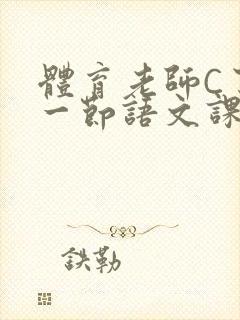 體育老師C
一節語文課
鉄勒